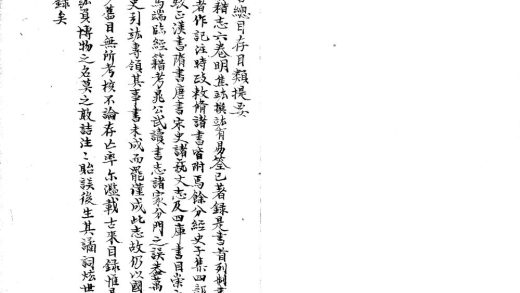 總目存目類提要
籍志六卷明焦竑撰竑有易筌已著錄是書首列制書
著作記注時政敕脩諸書皆附焉餘分經史子集四部
駁正漢書隋書唐書宋史諸藝文志及四庫書目崇
馬端臨經籍考晁公武讀書志諸家分門之誤蓋萬
史引竑專領其事書未成而罷僅成此志故仍以國
舊目無所考核不論存亡率尔濫載古來目錄惟是
竑負博物之名莫之敢詰往〻貽誤後生其譎詞炫世
錄矣